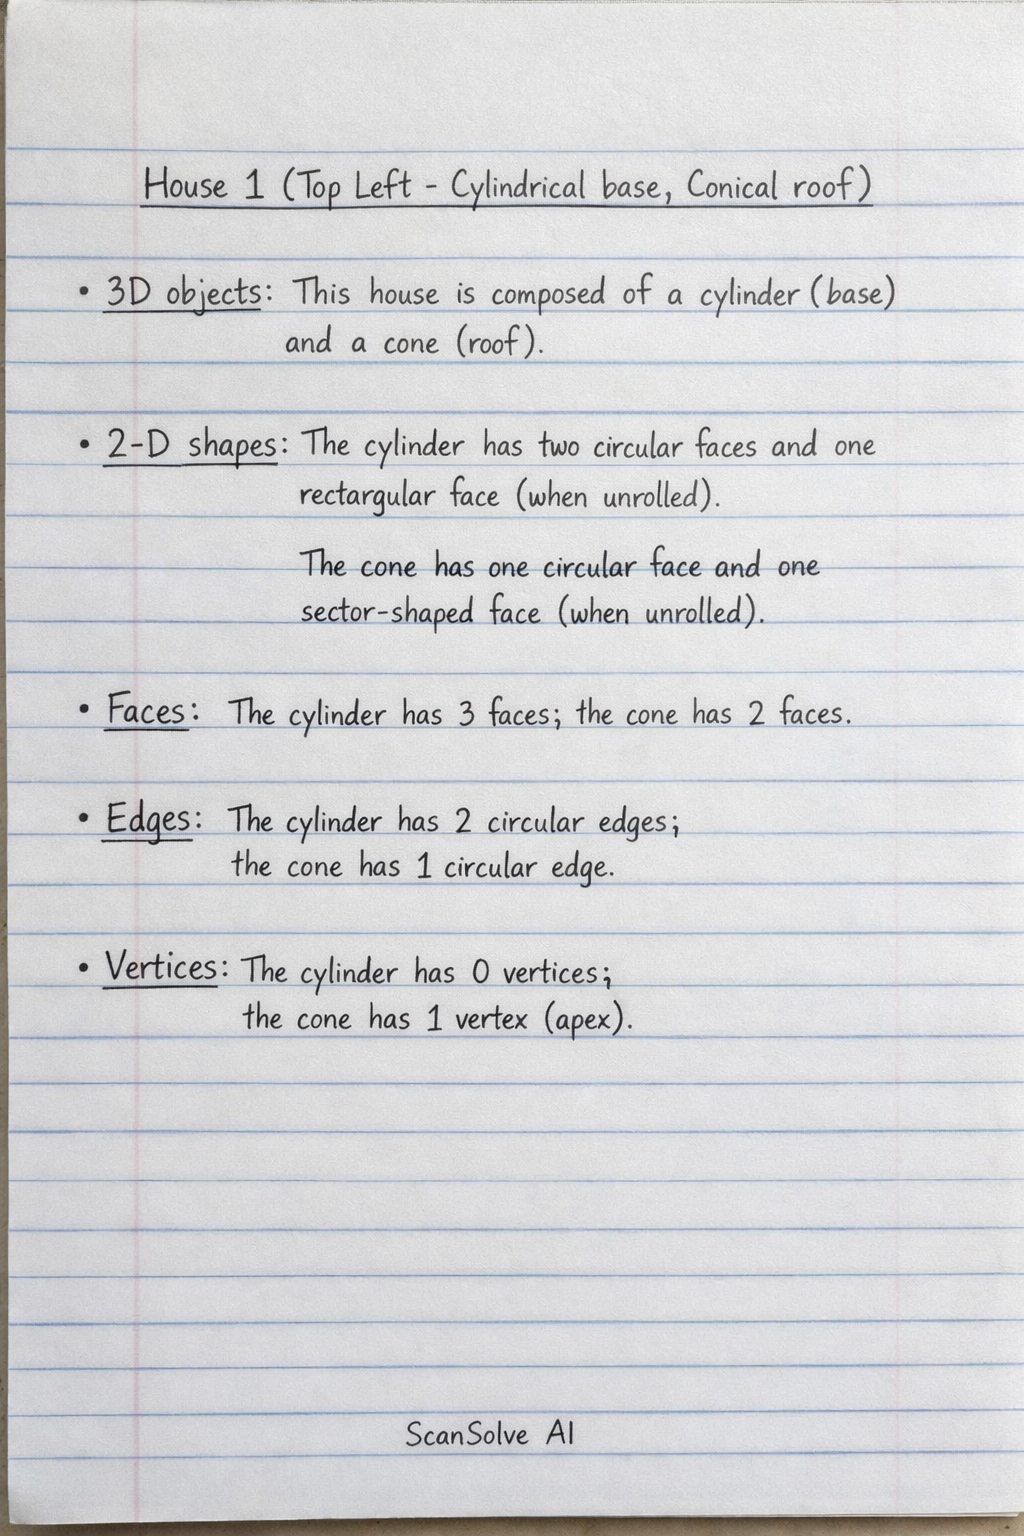 House 1 (Top Left - Cylindrical base, Conical roof)
• 3D objects: This house is composed of a cylinder (base)
and a cone (roof).
• 2-D shapes: The cylinder has two circular faces and one
rectargular face (when unrolled).
The cone has one circular face and one
sector-shaped face (when unrolled).
• Faces: The cylinder has 3 faces; the cone has 2 faces.
• Edges: The cylinder has 2 circular edges;
the cone has 1 circular edge.
• Vertices: The cylinder has 0 vertices;
the cone has 1 vertex (apex).
ScanSolve AI